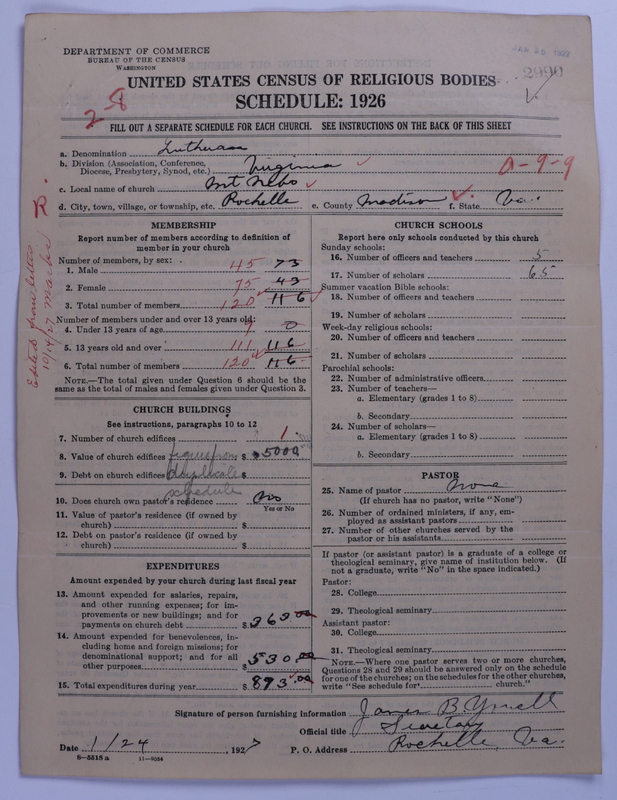 DEPARTMENT OF COMMERCE
BUREAU OF THE CENSUS
WASHINGTON
JAN 25 1927
2990
UNITED STATES CENSUS OF RELIGIOUS BODIES
SCHEDULE: 1926
FILL OUT A SEPARATE SCHEDULE FOR EACH CHURCH. SEE INSTRUCTIONS ON THE BACK OF THIS SHEET
a. Denomination Lutheran
b. Division (Association, Conference, Diocese, Presbytery, Synod, etc.) Virginia
c. Local name of church Mt Nebo
d. City, town, village, or township, etc. Rochelle e. County Madison f. State Va.
Edited from letter
10/14/27
MEMBERSHIP
Report number of members according to definition of
member in your church
Number of members, by sex:
1. Male 45 73
2. Female 75 43
3. Total number of members 120 116
Number of members under and over 13 years old:
4. Under 13 years of age 9 0
5. 13 years old and over 111 116
6. Total number of members 120 116
NOTE.—The total given under Question 6 should be the
same as the total of males and females given under Question 3.
CHURCH BUILDINGS
See instructions, paragraphs 10 to 12
7. Number of church edifices 1
8. Value of church edifices figures from $ 5000
9. Debt on church edifices duplicate $
schedule
10. Does church own pastor's residence No
Yes or No
11. Value of pastor's residence (if owned by
church) $
12. Debt on pastor's residence (if owned by
church) $
EXPENDITURES
Amount expended by your church during last fiscal year
13. Amount expended for salaries, repairs,
and other running expenses; for im-
provements or new buildings; and for
payments on church debt $ 363.00
14. Amount expended for benevolences, in-
cluding home and foreign missions; for
denominational support; and for all
other purposes $ 530.00
15. Total expenditures during year $ 893.00
CHURCH SCHOOLS
Report here only schools conducted by this church
Sunday schools:
16. Number of officers and teachers 5
17. Number of scholars 65
Summer vacation Bible schools:
18. Number of officers and teachers
19. Number of scholars
Week-day religious schools:
20. Number of officers and teachers
21. Number of scholars
Parochial schools:
22. Number of administrative officers
23. Number of teachers—
a. Elementary (grades 1 to 8)
b. Secondary
24. Number of scholars—
a. Elementary (grades 1 to 8)
b. Secondary
PASTOR
25. Name of pastor None
(If church has no pastor, write "None")
26. Number of ordained ministers, if any, em-
ployed as assistant pastors
27. Number of other churches served by the
pastor or his assistants
If pastor (or assistant pastor) is a graduate of a college or
theological seminary, give name of institution below. (If
not a graduate, write "No" in the space indicated.)
Pastor:
28. College
29. Theological seminary
Assistant pastor:
30. College
31. Theological seminary
NOTE.—Where one pastor serves two or more churches,
Questions 28 and 29 should be answered only on the schedule
for one of the churches; on the schedules for the other churches,
write "See schedule for church."
Signature of person furnishing information James B. Yowell
Official title Secretary
Date 1/24, 1927 P. O. Address Rochelle, Va.
8—5518 a 11—9354